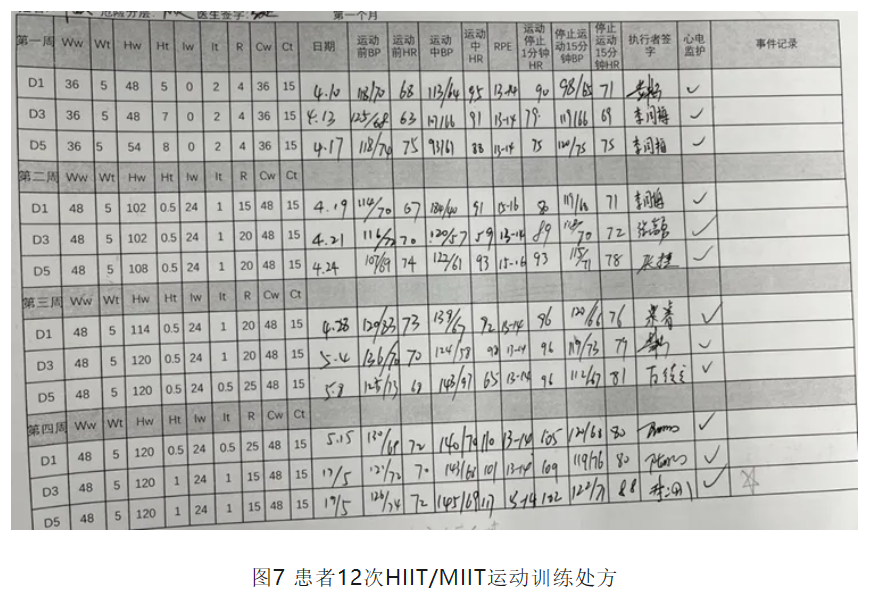 危险分层: 医生签字: 第一个月
第一周 Ww Wt Hw Ht Iw It R Cw Ct 日期 运动前BP 运动前HR 运动中BP 运动中HR RPE 运动停止1分钟HR 停止运动15分钟BP 停止运动15分钟HR 执行者签字 心电监护 事件记录
D1 36 5 48 5 0 2 4 36 15 4.10 118/70 68 113/64 95 13-14 90 98/65 71 ✓
D3 36 5 48 7 0 2 4 36 15 4.13 125/68 63 107/66 91 13-14 79 117/66 69 ✓
D5 36 5 54 8 0 2 4 36 15 4.17 118/74 75 93/61 88 13-14 75 120/75 75 ✓
第二周 Ww Wt Hw Ht Iw It R Cw Ct
D1 48 5 102 0.5 24 1 15 48 15 4.19 114/70 67 91 80 71 ✓
D3 48 5 102 0.5 24 1 20 48 15 4.21 70 120/57 59 13-14 89 72 ✓
D5 48 5 108 0.5 24 1 20 48 15 4.24 107/69 74 122/61 93 15-16 93 115/71 78 ✓
第三周 Ww Wt Hw Ht Iw It R Cw Ct
D1 48 5 114 0.5 24 1 20 48 15 4.28 73 139/67 92 13-14 96 120/66 76 ✓
D3 48 5 120 0.5 24 1 20 48 15 5.4 136/70 70 124/58 98 13-14 96 119/73 79 ✓
D5 48 5 120 0.5 24 0.5 25 48 15 5.8 125/73 143/97 65 13-14 96 112/67 81 ✓
第四周 Ww Wt Hw Ht Iw It R Cw Ct
D1 48 5 120 0.5 24 0.5 25 48 15 5.15 130/69 72 140/70 110 13-14 105 120/68 80 ✓
D3 48 5 120 1 24 1 15 48 15 17/5 70 143/66 101 13-14 109 119/76 80 ✓
D5 48 5 120 1 24 1 15 48 15 19/5 126/74 72 145/69 117 13-14 88 ✓
图7 患者12次HIIT/MIIT运动训练处方